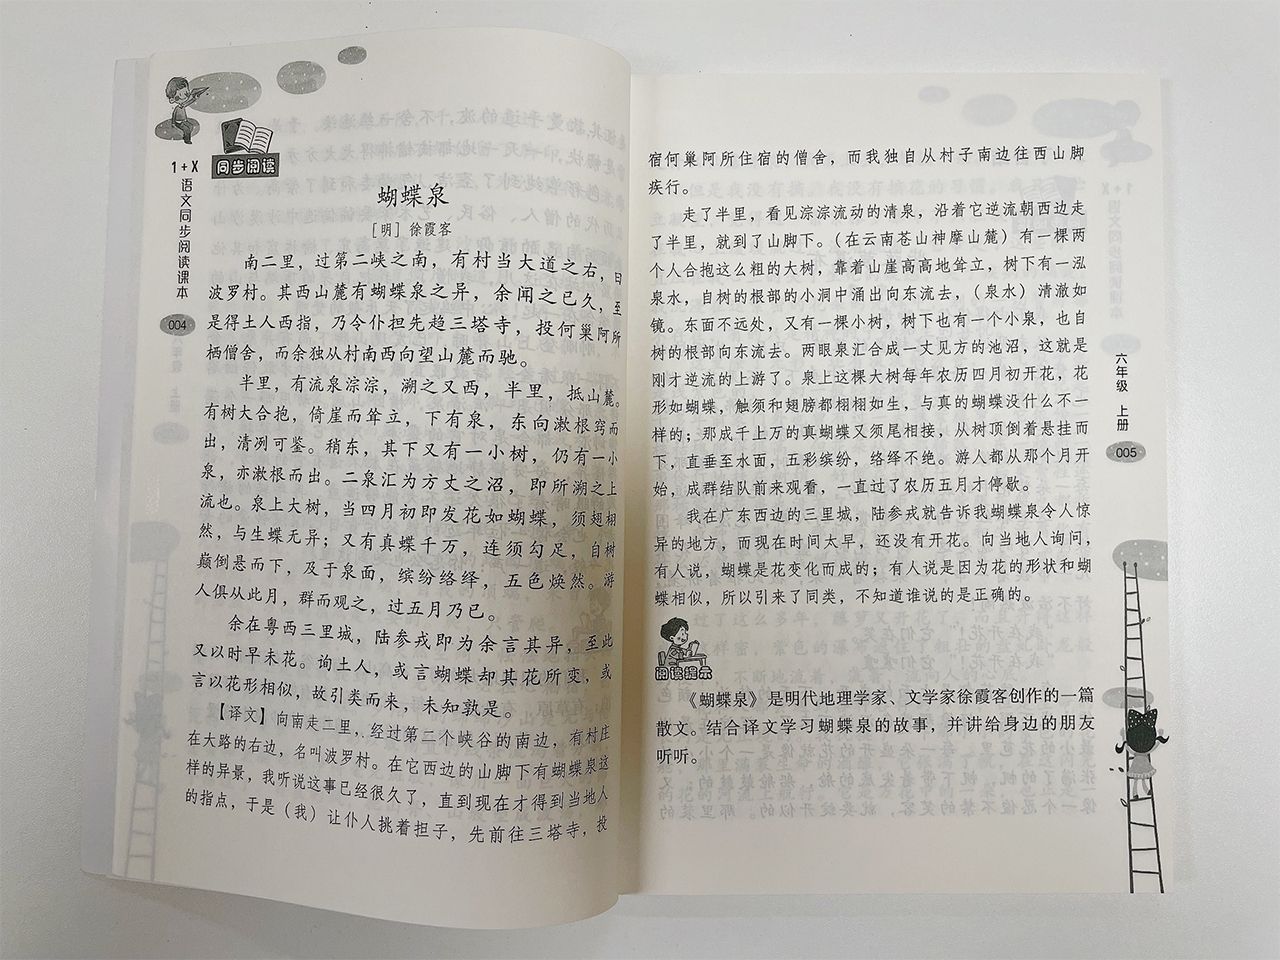 1+X
语文同步阅读课本
004
同步阅读
蝴蝶泉
［明］徐霞客
南二里，过第二峡之南，有村当大道之右，曰
波罗村。其西山麓有蝴蝶泉之异，余闻之已久，至
是得土人西指，乃令仆担先趋三塔寺，投何巢阿所
栖僧舍，而余独从村南西向望山麓而驰。
半里，有流泉淙淙，溯之又西，半里，抵山麓。
有树大合抱，倚崖而耸立，下有泉，东向漱根窍而
出，清冽可鉴。稍东，其下又有一小树，仍有一小
泉，亦漱根而出。二泉汇为方丈之沼，即所溯之上
流也。泉上大树，当四月初即发花如蝴蝶，须翅栩
然，与生蝶无异；又有真蝶千万，连须勾足，自树
巅倒悬而下，及于泉面，缤纷络绎，五色焕然。游
人俱从此月，群而观之，过五月乃已。
余在粤西三里城，陆参戎即为余言其异，至此
又以时早未花。询土人，或言蝴蝶却其花所变，或
言以花形相似，故引类而来，未知孰是。
【译文】向南走二里，经过第二个峡谷的南边，有村庄
在大路的右边，名叫波罗村。在它西边的山脚下有蝴蝶泉这
样的异景，我听说这事已经很久了，直到现在才得到当地人
的指点，于是（我）让仆人挑着担子，先前往三塔寺，投
宿何巢阿所住宿的僧舍，而我独自从村子南边往西山脚
疾行。
走了半里，看见淙淙流动的清泉，沿着它逆流朝西边走
了半里，就到了山脚下。（在云南苍山神摩山麓）有一棵两
个人合抱这么粗的大树，靠着山崖高高地耸立，树下有一泓
泉水，自树的根部的小洞中涌出向东流去，（泉水）清澈如
镜。东面不远处，又有一棵小树，树下也有一个小泉，也自
树的根部向东流去。两眼泉汇合成一丈见方的池沼，这就是
刚才逆流的上游了。泉上这棵大树每年农历四月初开花，花
形如蝴蝶，触须和翅膀都栩栩如生，与真的蝴蝶没什么不一
样的；那成千上万的真蝴蝶又须尾相接，从树顶倒着悬挂而
下，直垂至水面，五彩缤纷，络绎不绝。游人都从那个月开
始，成群结队前来观看，一直过了农历五月才停歇。
我在广东西边的三里城，陆参戎就告诉我蝴蝶泉令人惊
异的地方，而现在时间太早，还没有开花。向当地人询问，
有人说，蝴蝶是花变化而成的；有人说是因为花的形状和蝴
蝶相似，所以引来了同类，不知道谁说的是正确的。
阅读提示
《蝴蝶泉》是明代地理学家、文学家徐霞客创作的一篇
散文。结合译文学习蝴蝶泉的故事，并讲给身边的朋友
听听。
六年级 上册
005